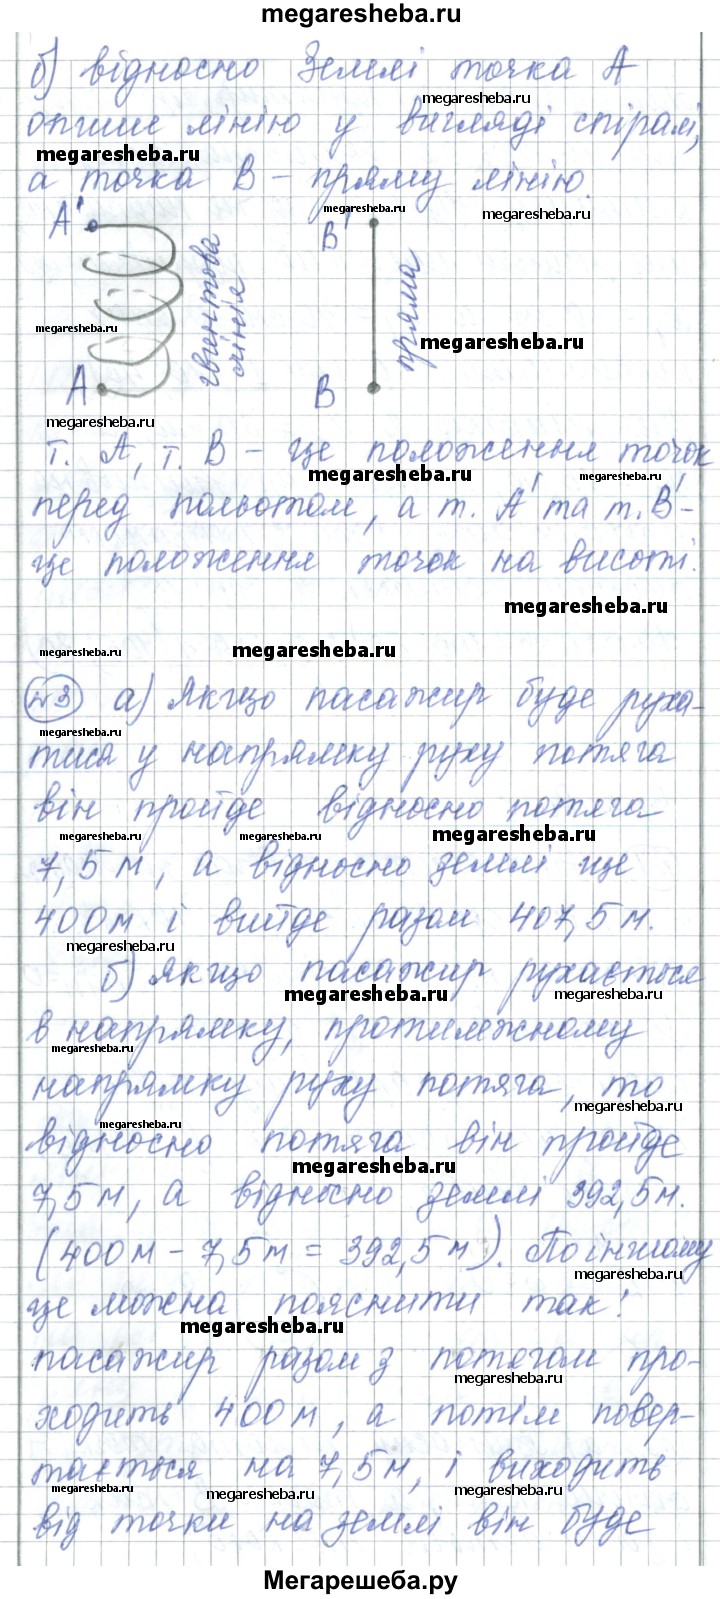 megaresheba.ru
б) відносно Землі точка А
megaresheba.ru
опише лінію у вигляді спіралі,
megaresheba.ru
megaresheba.ru
а точка В – пряму лінію.
megaresheba.ru
megaresheba.ru
А' В'
гвинтова лінія
пряма
megaresheba.ru
megaresheba.ru
А В
megaresheba.ru
т. А, т. В – це положення точок
megaresheba.ru
megaresheba.ru
перед польотом, а т. А' та т. В' –
це положення точок на висоті.
megaresheba.ru
megaresheba.ru
megaresheba.ru
№3 а) Якщо пасажир буде руха-
megaresheba.ru
тися у напрямку руху потяга
він пройде відносно потяга
megaresheba.ru
megaresheba.ru
megaresheba.ru
7,5 м, а відносно землі ще
400 м і вийде разом 407,5 м.
megaresheba.ru
б) якщо пасажир рухається
megaresheba.ru
megaresheba.ru
в напрямку, протилежному
megaresheba.ru
напрямку руху потяга, то
megaresheba.ru
megaresheba.ru
відносно потяга він пройде
megaresheba.ru
7,5 м, а відносно землі 392,5 м.
(400 м – 7,5 м = 392,5 м). По іншому
megaresheba.ru
це можна пояснити так:
megaresheba.ru
пасажир разом з потягом про-
megaresheba.ru
ходить 400 м, а потім повер-
тається на 7,5 м, і виходить
megaresheba.ru
megaresheba.ru
megaresheba.ru
від точки на землі він буде
Мегарешеба.ру